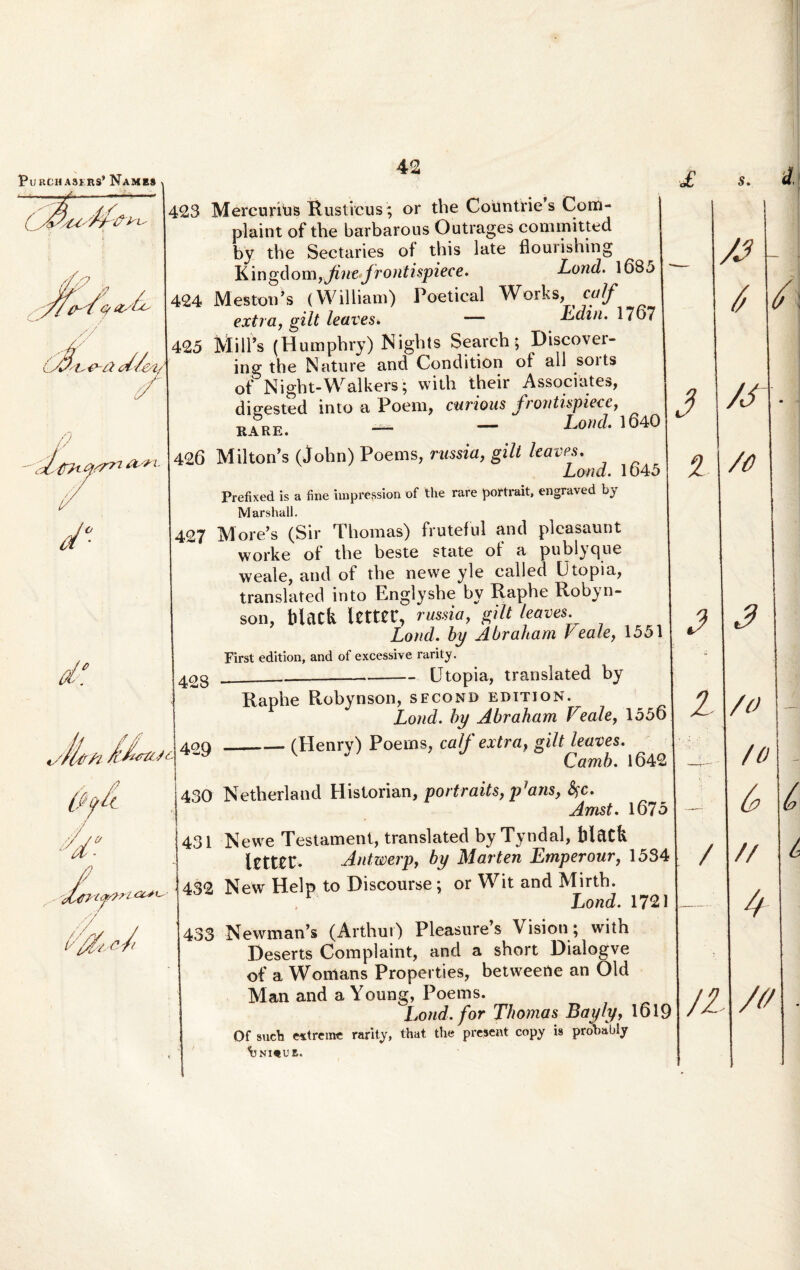 42
Purchasers' Names
£ s. d.
423 Mercurius Rusticus; or the Countrie's Com-
plaint of the barbarous Outrages committed
by the Sectaries of this late flourishing
Kingdom, fine frontispiece. Lond. 1685
— 13 -
424 Meston's (William) Poetical Works, calf
extra, gilt leaves. — Edin. 1767
6 6
425 Mill's (Humphry) Nights Search; Discover-
ing the Nature and Condition of all sorts
of Night-Walkers; with their Associates,
digested into a Poem, curious frontispiece,
RARE. — — Lond. 1640
3 15 -
Longman
426 Milton's (John) Poems, russia, gilt leaves.
Lond. 1645
2 10
Prefixed is a fine impression of the rare portrait, engraved by
Marshall.
do.
427 More's (Sir Thomas) fruteful and pleasaunt
worke of the beste state of a publyque
weale, and of the newe yle called Utopia,
translated into Englyshe by Raphe Robyn-
son, black letter, russia, gilt leaves.
Lond. by Abraham Veale, 1551
3 3
First edition, and of excessive rarity.
do.
428 ———— Utopia, translated by
Raphe Robynson, SECOND EDITION.
Lond. by Abraham Veale, 1556
2 10 -
429 ——— (Henry) Poems, calf extra, gilt leaves.
Camb. 1642
— 10
430 Netherland Historian, portraits, plans, &c.
Amst. 1675
— 6 6
do.
431 Newe Testament, translated by Tyndal, black
letter. Antwerp, by Marten Emperour, 1534
1 11 6
Longman
432 New Help to Discourse; or Wit and Mirth.
Lond. 1721
— 4
433 Newman's (Arthur) Pleasure's Vision; with
Deserts Complaint, and a short Dialogve
of a Womans Properties, betweene an Old
Man and a Young, Poems.
Lond. for Thomas Bayly, 1619
12 10 -
Of such extreme rarity, that the present copy is probably
UNIQUE.